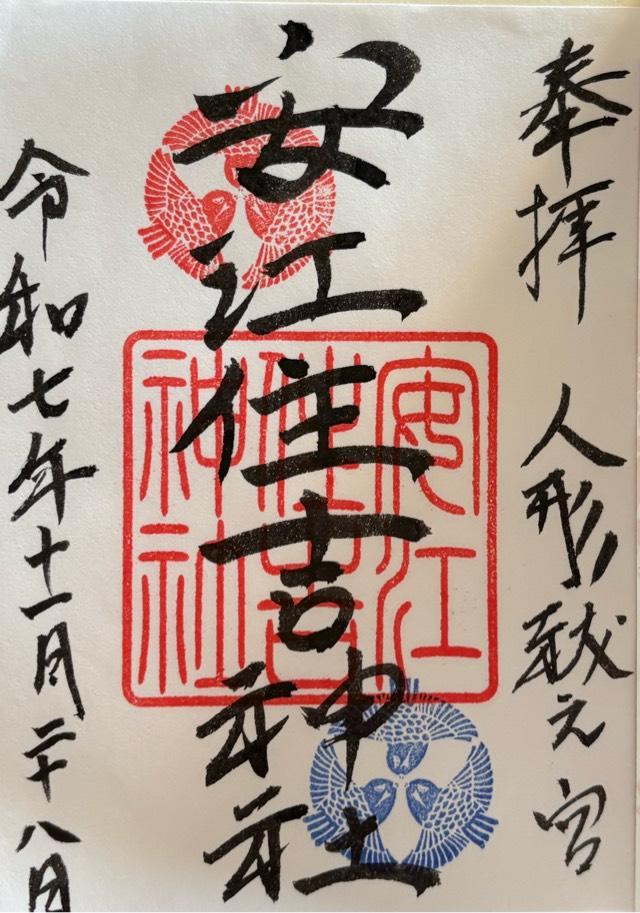 奉拝 人形 元宮
安江住吉神社
令和七年十一月二十八日
安江
住吉
神社